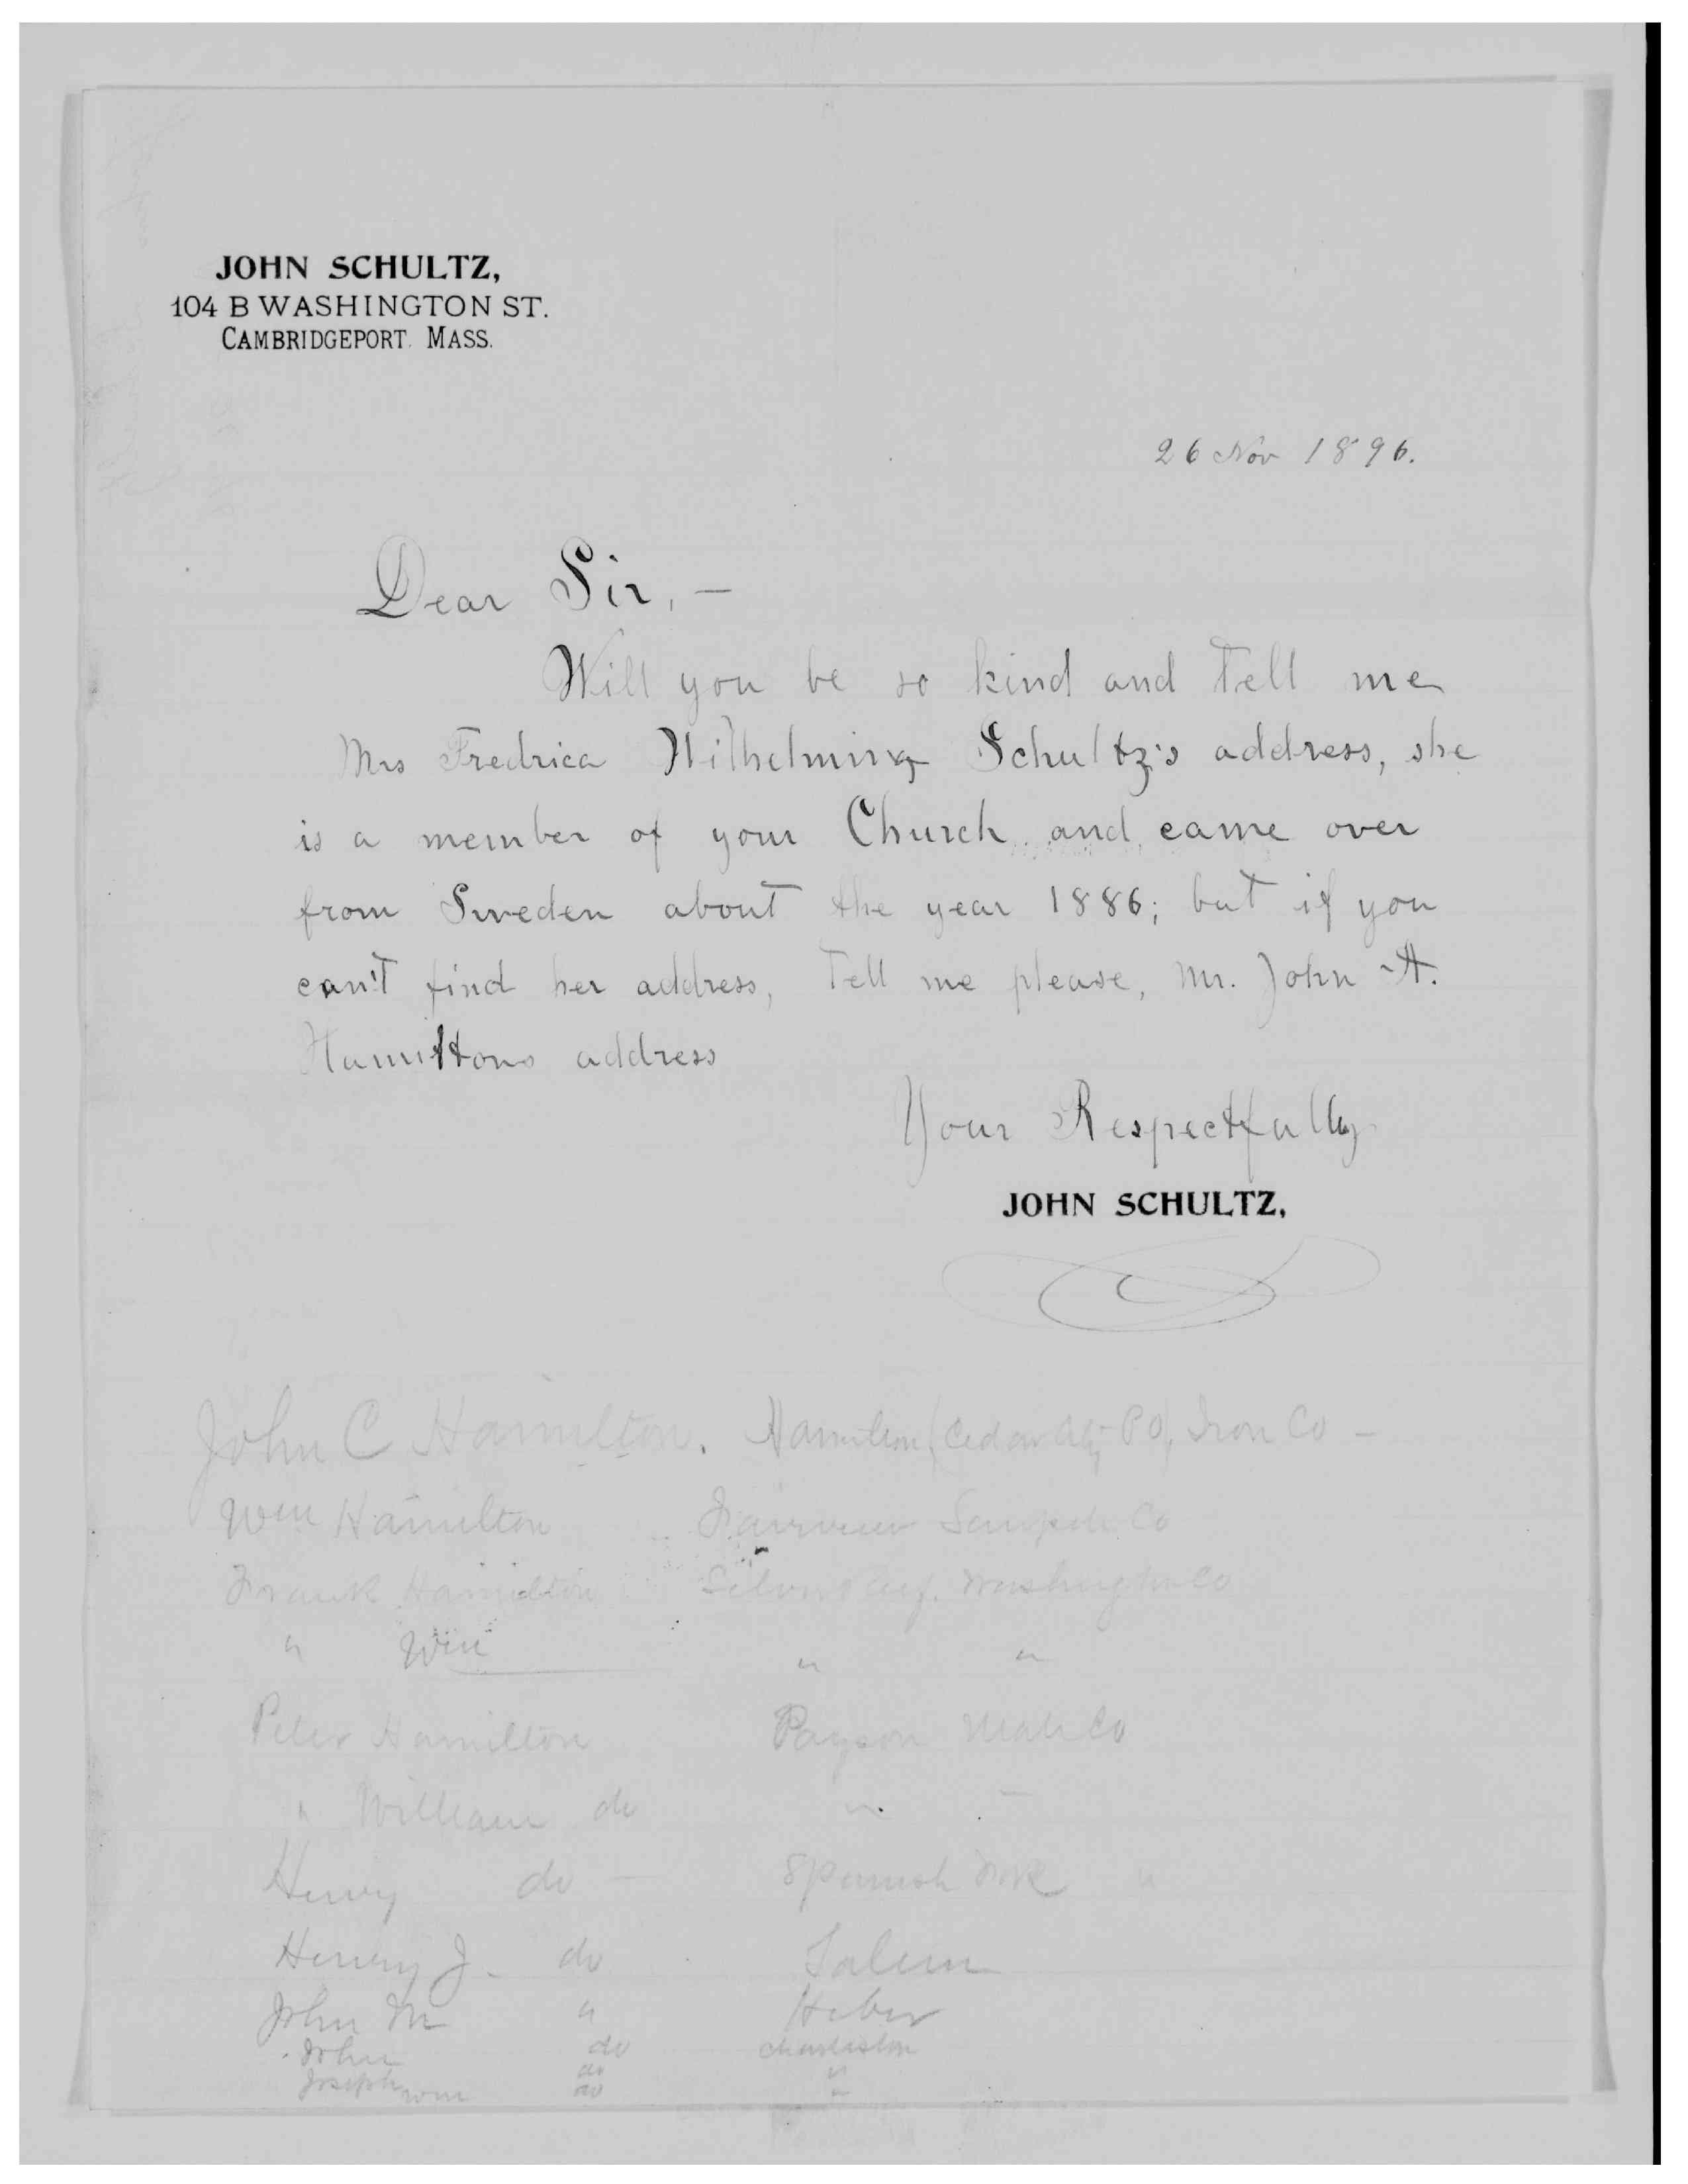 JOHN SCHULTZ,
104 B WASHINGTON ST.
CAMBRIDGEPORT. MASS.
26 Nov 1896.
Dear Sir, —
Will you be so kind and tell me
Mrs Fredrica Wilhelmina Schultz's address, she
is a member of your Church and came over
from Sweden about the year 1886; but if you
can't find her address, tell me please, Mr. John A.
Hamiltons address
Your Respectfully
JOHN SCHULTZ,
John C Hamilton. Hamilton (Cedar City P O), Iron Co –
Wm Hamilton Fairview Sanpete Co
Frank Hamilton Silver City. Washington Co
" Wm " "
Peter Hamilton Payson Utah Co
" William do " –
Henry do – Spanish Fork "
Henry J. do Salem
John M " Heber
John do Charleston
Joseph do "
Wm do "